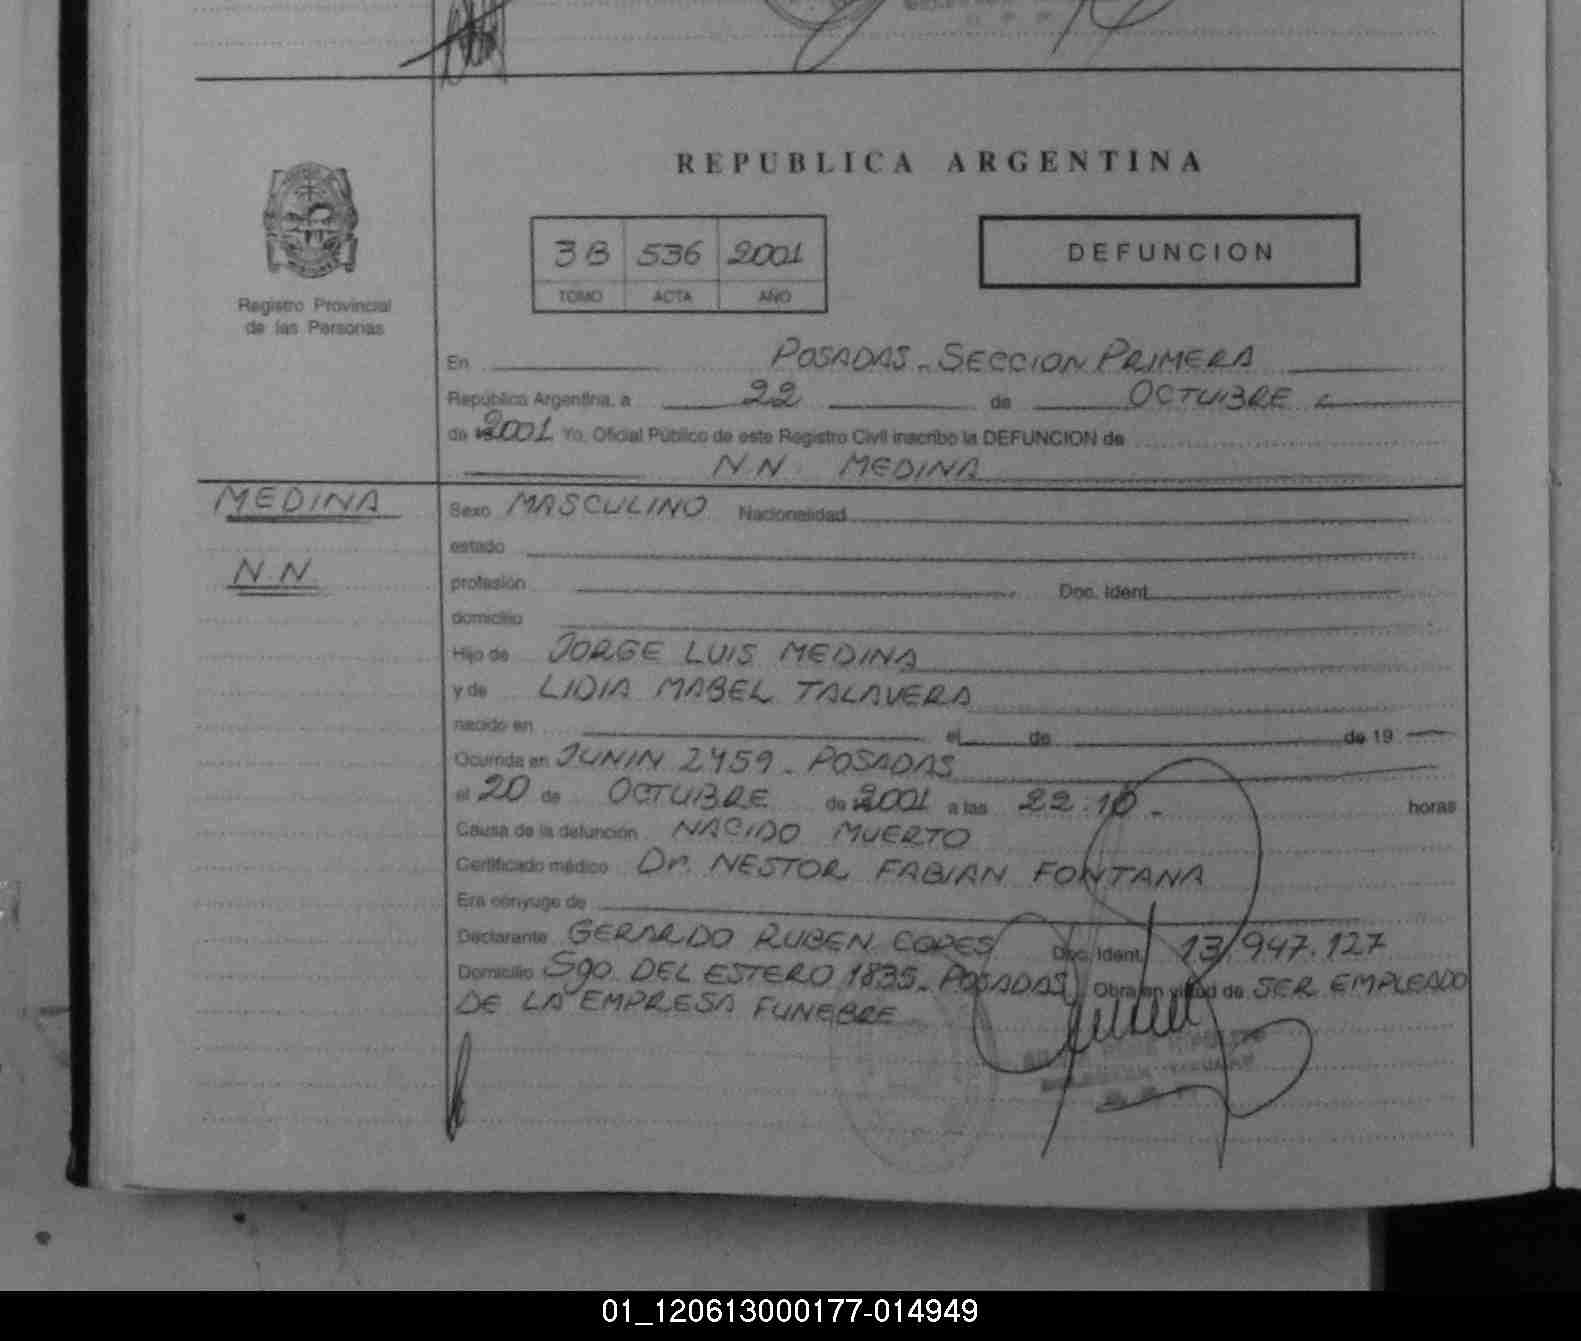 REPUBLICA ARGENTINA
3B 536 2001
TOMO ACTA AÑO
DEFUNCION
Registro Provincial
de las Personas
En POSADAS - SECCION PRIMERA
República Argentina, a 22 de OCTUBRE
de 2001 Yo, Oficial Público de este Registro Civil inscribo la DEFUNCION de
N.N. MEDINA
MEDINA
N.N.
Sexo MASCULINO Nacionalidad
estado
profesión Doc. Ident.
domicilio
Hijo de JORGE LUIS MEDINA
y de LIDIA MABEL TALAVERA
nacido en el de de 19
Ocurrida en JUNIN 2459 - POSADAS
el 20 de OCTUBRE de 2001 a las 22:10 - horas
Causa de la defunción NACIDO MUERTO
Certificado médico Dr. NESTOR FABIAN FONTANA
Era cónyuge de
Declarante GERARDO RUBEN COPES Doc. Ident. 13.947.127
Domicilio Sgo. DEL ESTERO 1835 - POSADAS Obra en virtud de SER EMPLEADO
DE LA EMPRESA FUNEBRE
01_120613000177-014949